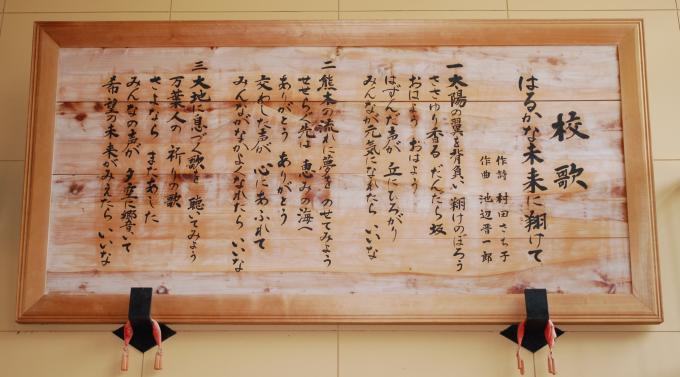 校歌
はるかな未来に翔けて
作詩 村田さち子
作曲 池辺晋一郎
一 太陽の翼を背負い 翔けのぼろう
ささゆり香る だんだら坂
おはよう おはよう
はずんだ声が 丘にひろがり
みんなが元気になれたら いいな
二 熊木の流れに夢を のせてみよう
せせらぐ先は 恵みの海へ
ありがとう ありがとう
交わした声が 心にあふれて
みんながなかよくなれたら いいな
三 大地に息づく歌を 聴いてみよう
万葉人の 祈りの歌
さよなら またあした
みんなの声が 夕空に響いて
希望の未来がみえたら いいな